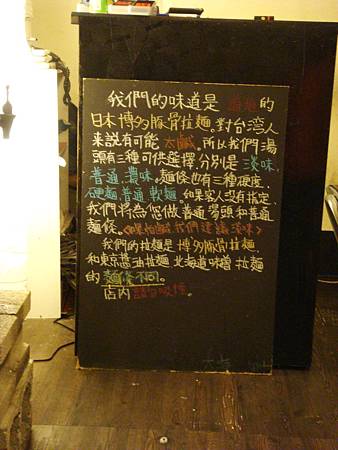 我們的味道是 道地的
日本博多豚骨拉麵。對台湾人
来說有可能太鹹。所以我們湯
頭有三種可供選擇,分別是淡味、
普通、濃味。麵條也有三種硬度、
硬麵、普通、軟麵。如果客人没有指定、
我們將為您做普通湯頭和普通
麵條。(如果怕鹹,我們建議淡味)
我們的拉麵是博多豚骨拉麵
和東京醬油拉麵、北海道味噌拉麵
的麵條不同。
店内請勿吸煙。